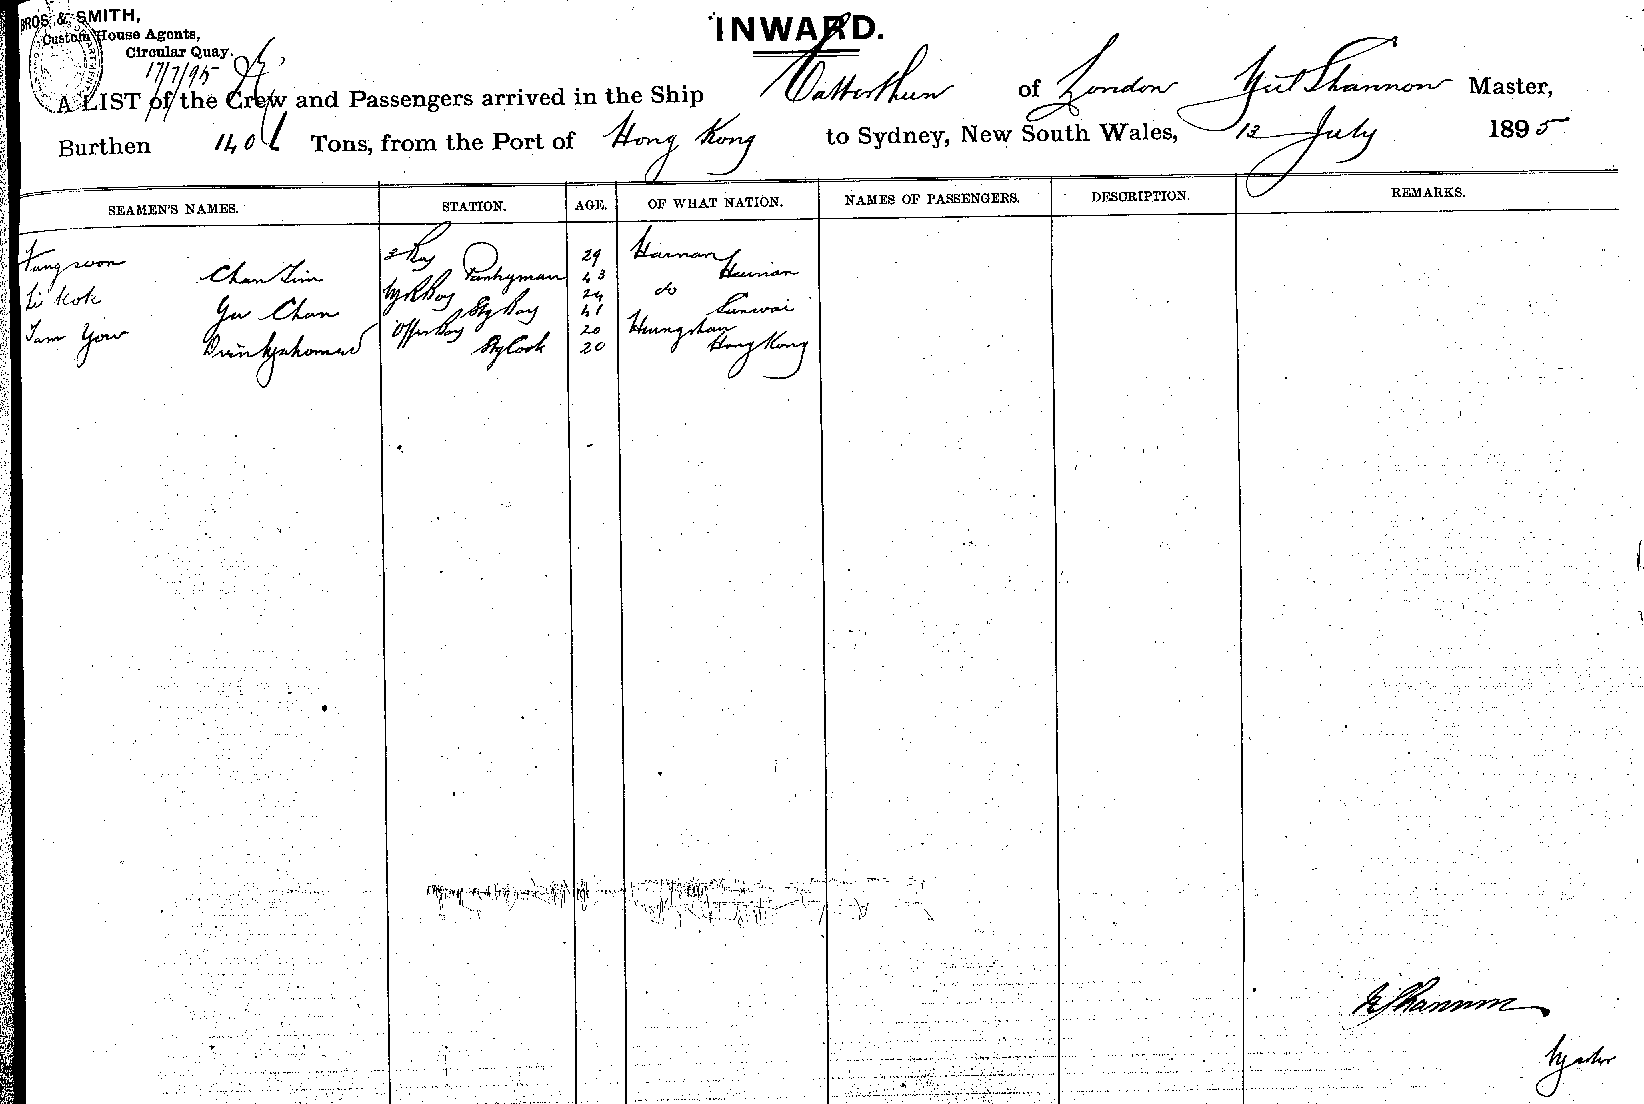 BROS. & SMITH,
Custom House Agents,
Circular Quay.
17/7/95
INWARD.
A LIST of the Crew and Passengers arrived in the Ship Catterthun of London Neil Shannon Master,
Burthen 1406 Tons, from the Port of Hong Kong to Sydney, New South Wales, 12 July 1895
SEAMEN'S NAMES. STATION. AGE. OF WHAT NATION. NAMES OF PASSENGERS. DESCRIPTION. REMARKS.
2 Boy 29 Hainan
Chan Pantryman 43 Hainan
Li Kok Boy 24 do
Chan Boy 41 Sunwai
Tam Yow Boy 20 Heungshan
Cook 20 Hong Kong
N Shannon
Master